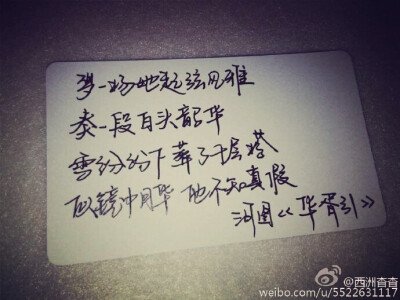 梦一场她起弦风雅
奏一段白头韶华
雪纷纷下 葬了千层塔
似镜中月华 他不知真假
河图《华胥引》
@西洲
weibo.com/u/5522631117